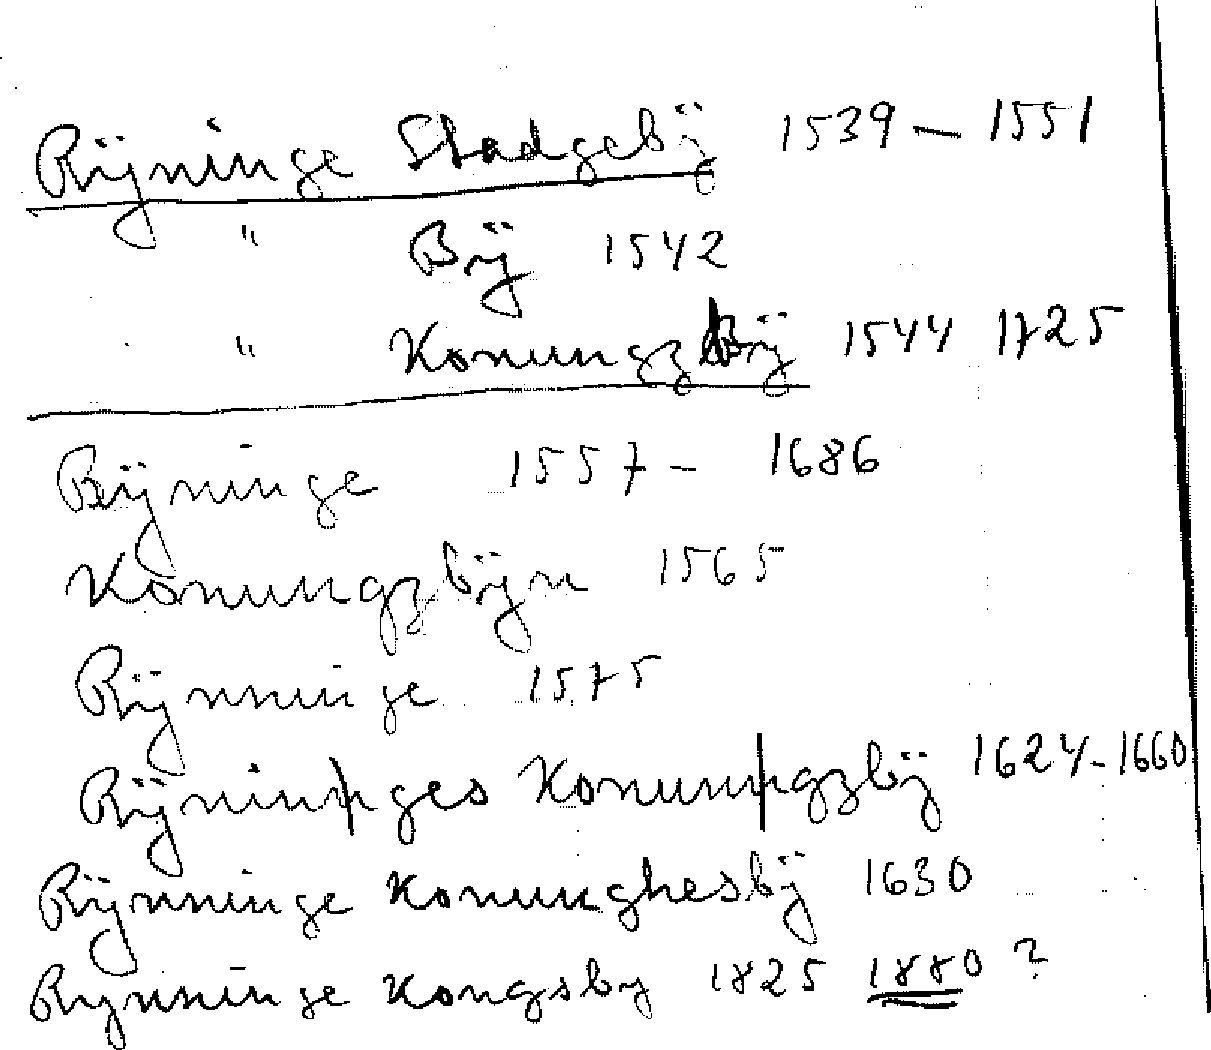 Rÿninge Stadgebÿ 1539 — 1551
" Bÿ 1542
" Konungz Bÿ 1544 1725
Rÿninge 1557 - 1686
Konungzbÿn 1565
Rÿnninge 1575
Rÿninges Konungzbÿ 1624-1660
Rÿnninge Konunghesbÿ 1630
Rynninge Kongsby 1825 1880 ?